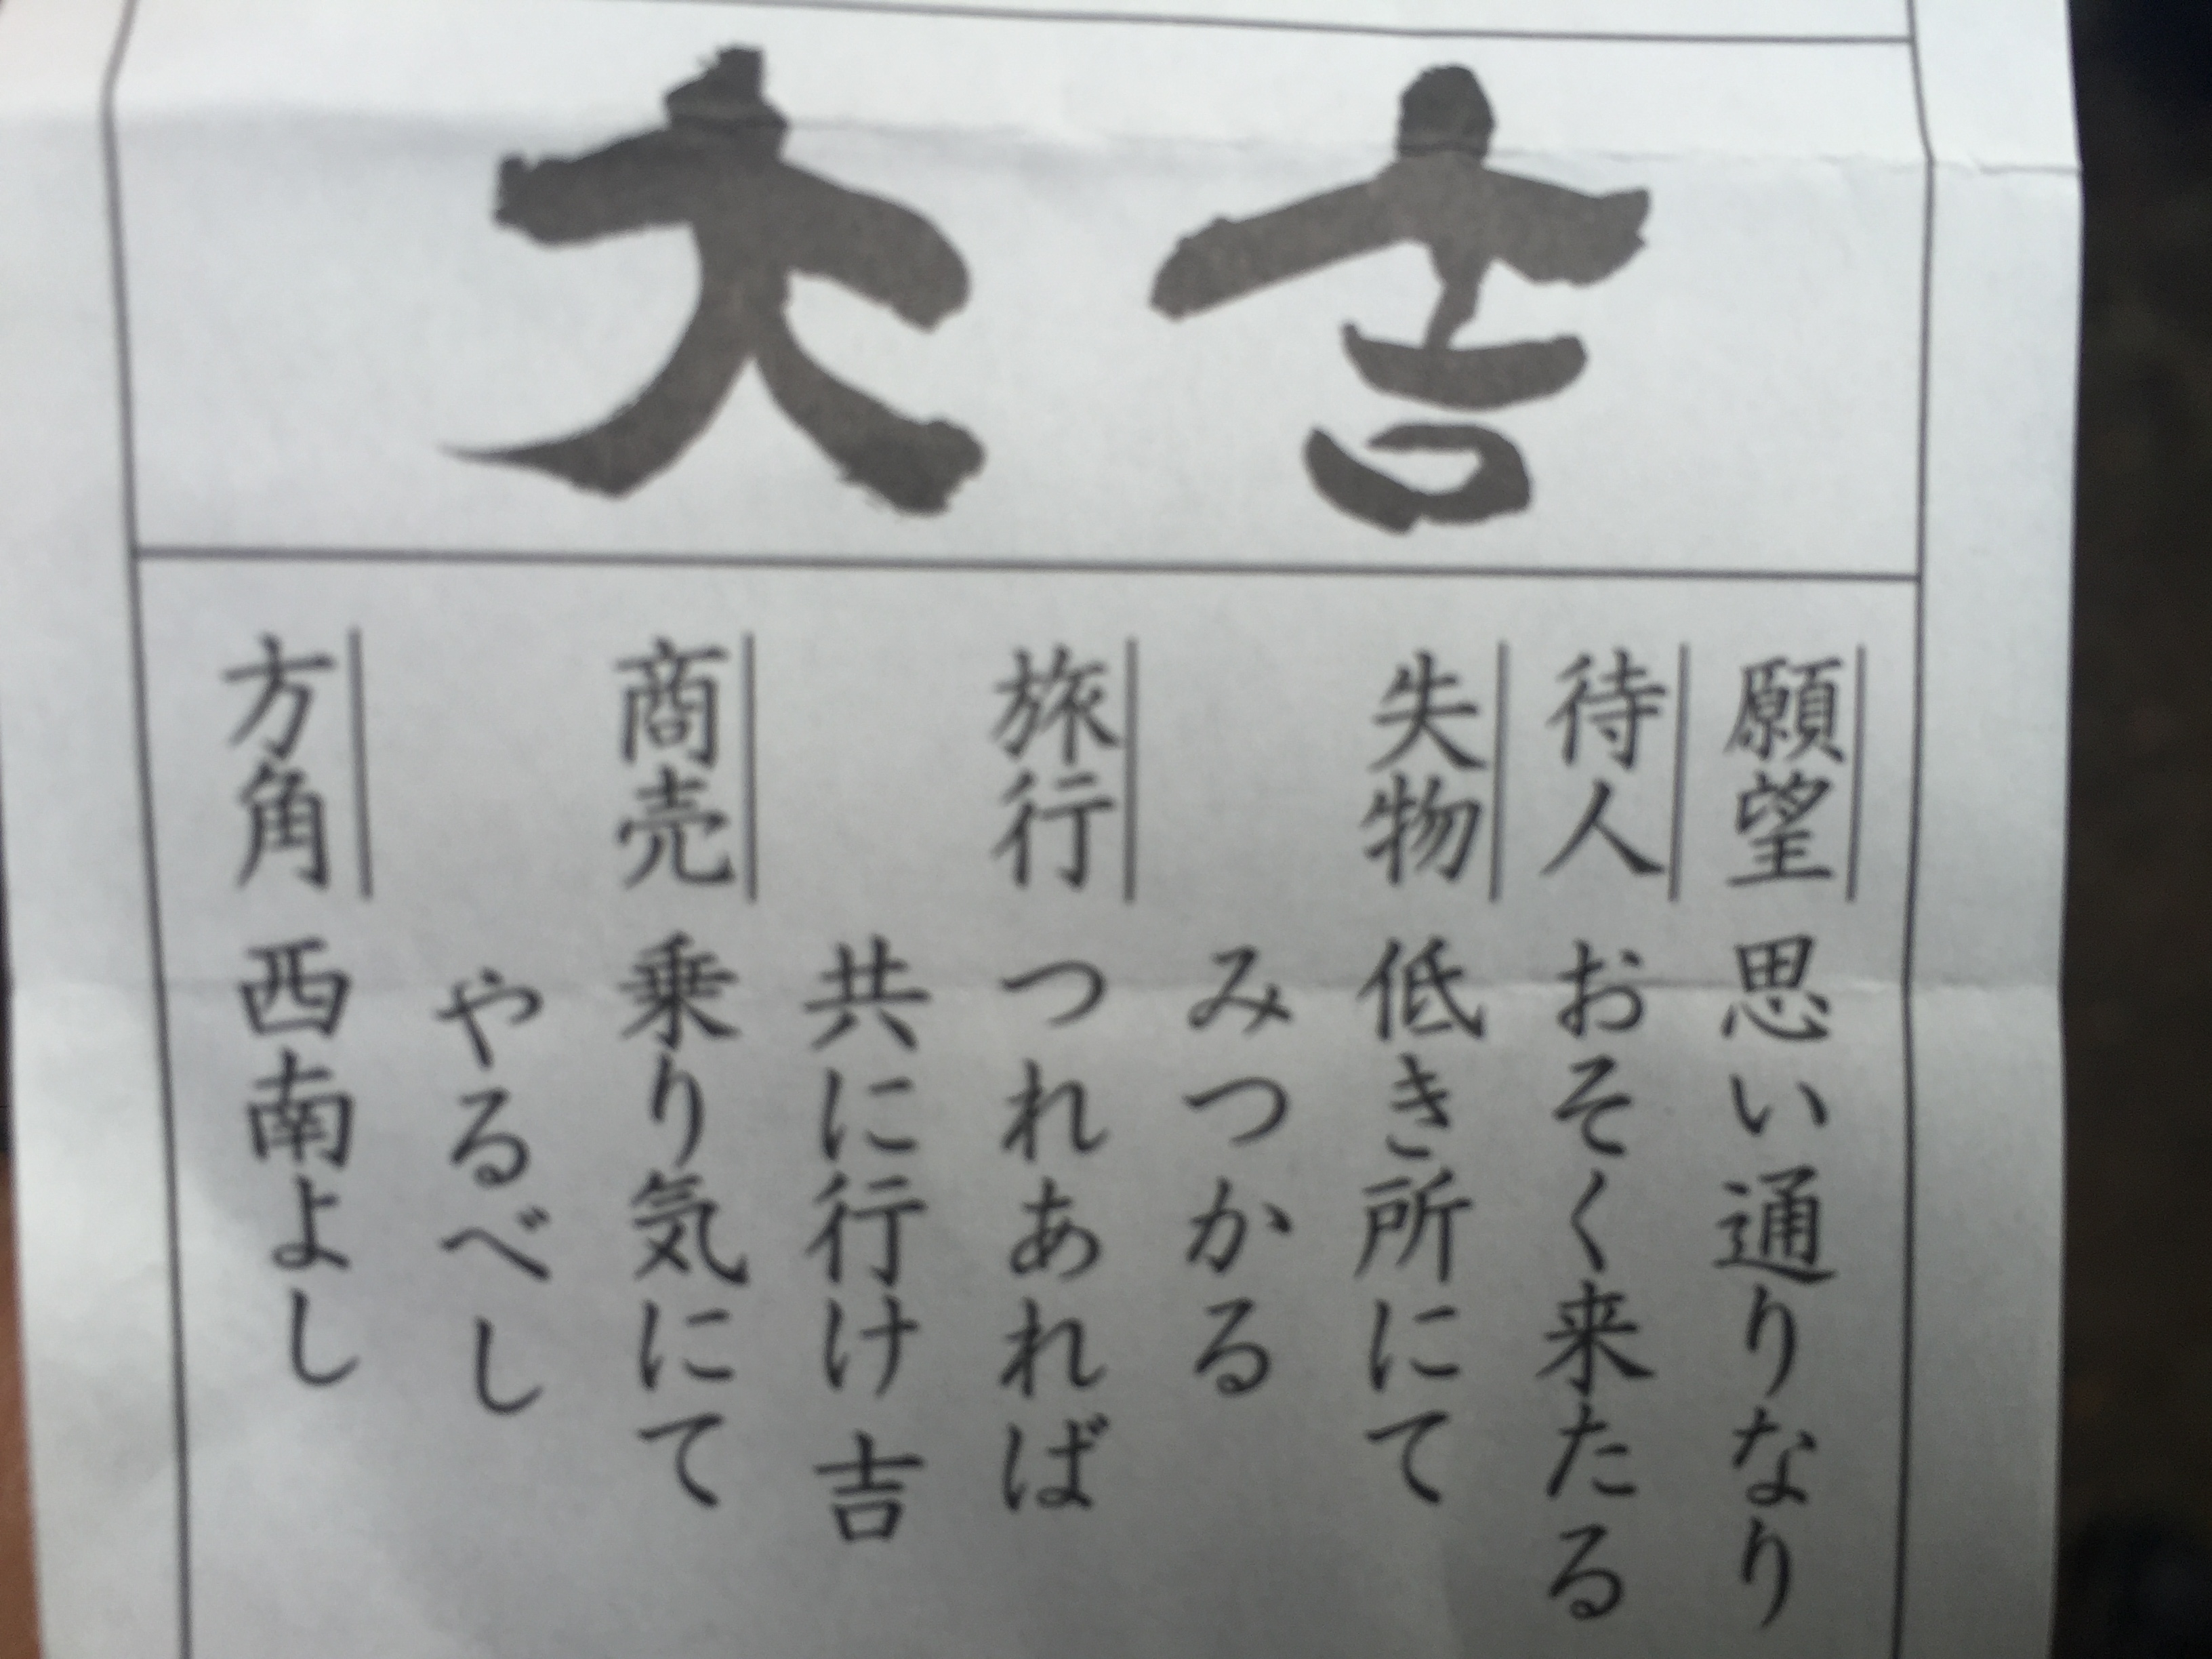 大吉
願望 思い通りなり
待人 おそく来たる
失物 低き所にて
みつかる
旅行 つれあれば
共に行け 吉
商売 乗り気にて
やるべし
方角 西南よし